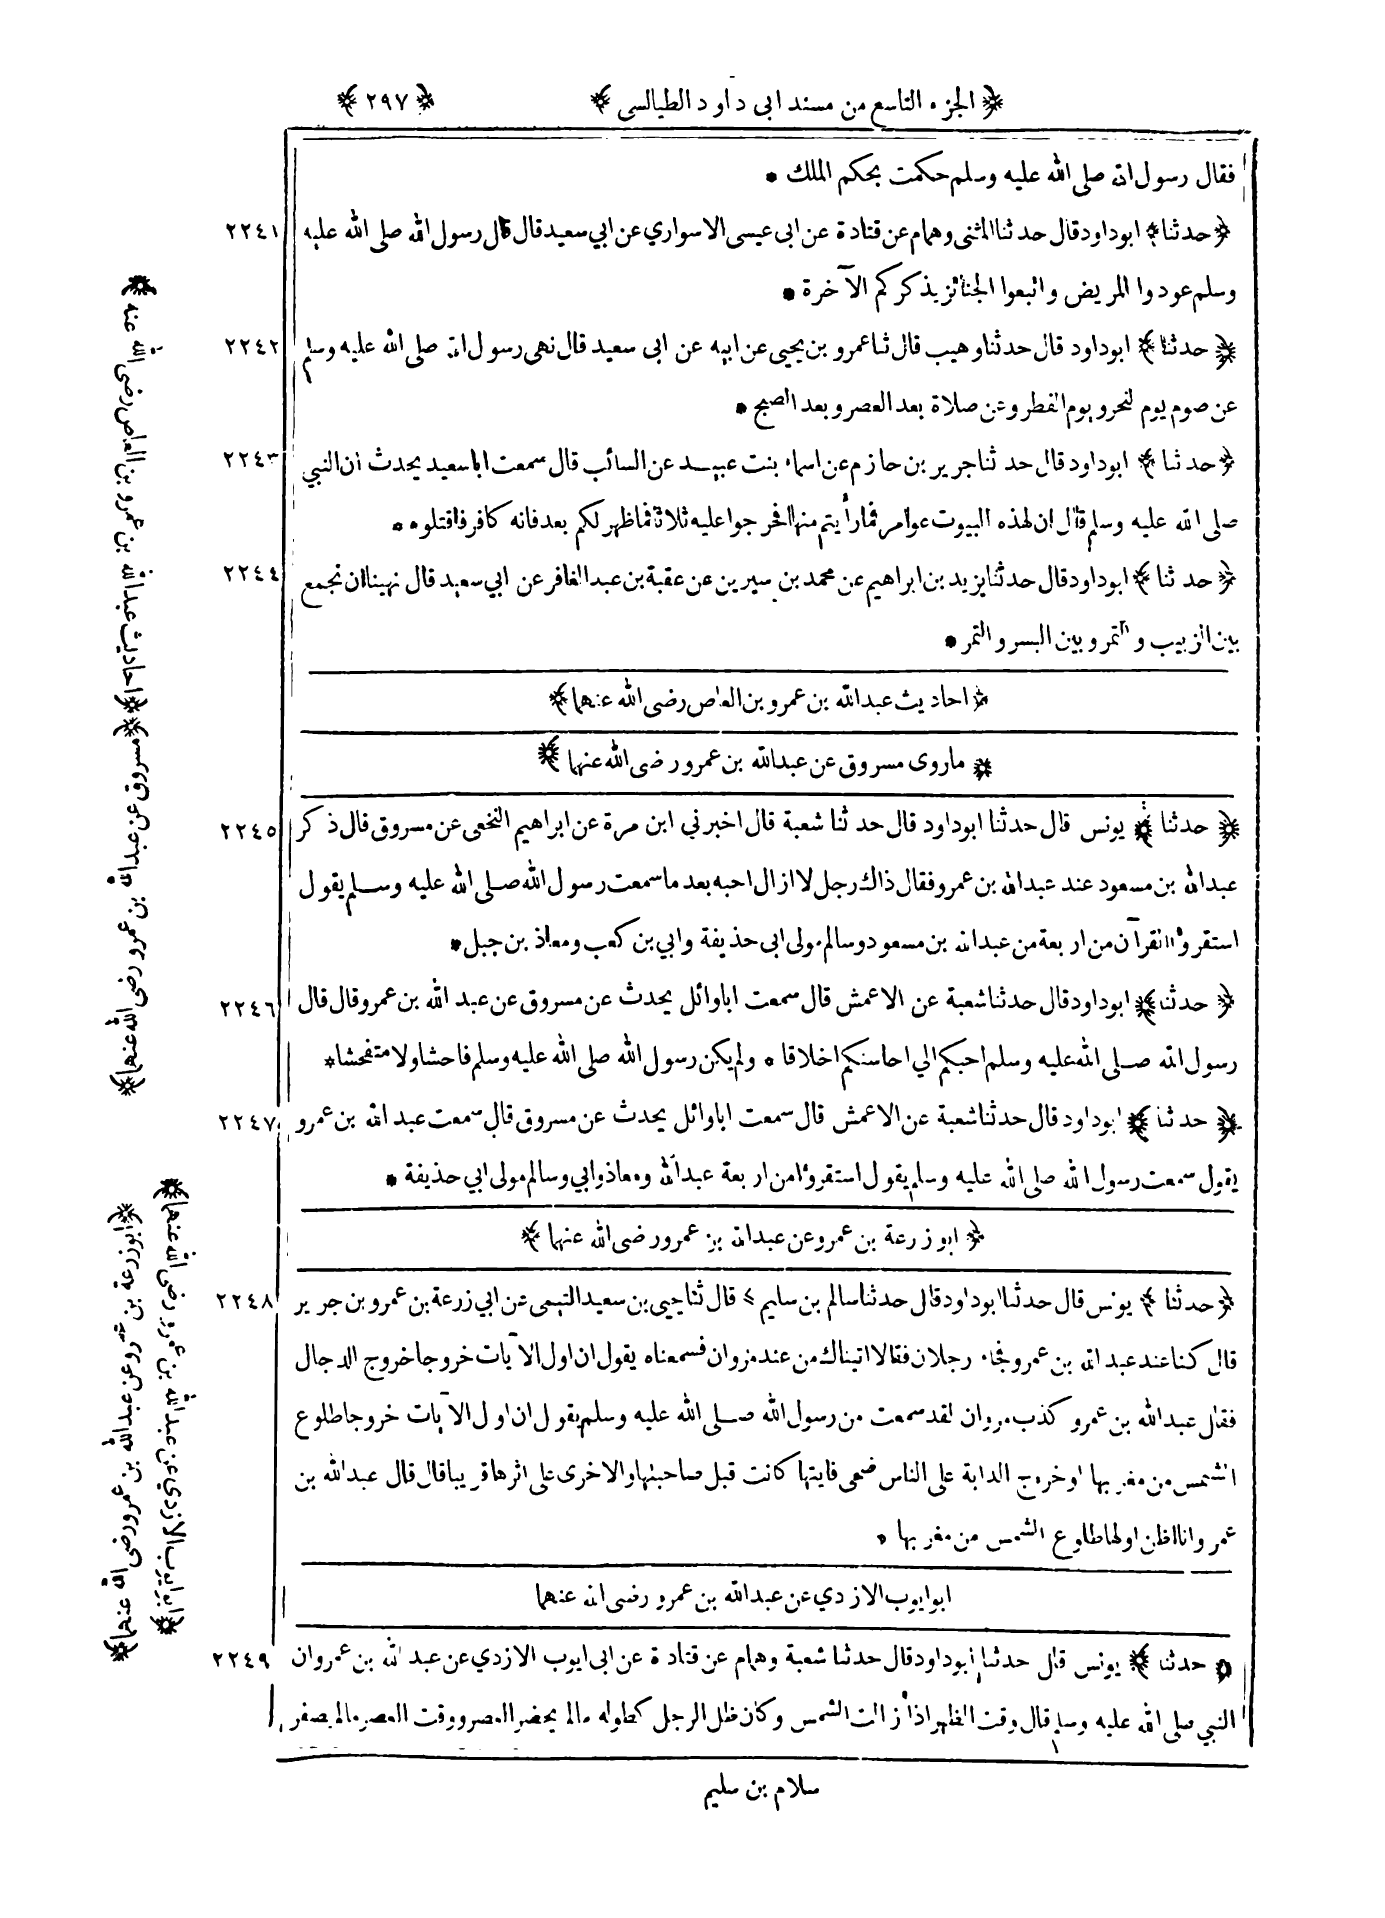 ﴿ الجزء التاسع من مسند ابى داود الطيالسى ﴾ ﴿ ٢٩٧ ﴾
فقال رسول الله صلى الله عليه وسلم حكمت بحكم الملك *
٢٢٤١ ﴿ حدثنا ﴾ ابوداود قال حدثنا المثنى وهمام عن قتادة عن ابى عيسى الاسواري عن ابي سعيد قال قال رسول الله صلى الله عليه
وسلم عودوا المريض واتبعوا الجنائز يذكركم الآخرة *
٢٢٤٢ ﴿ حدثنا ﴾ ابوداود قال حدثنا وهيب قال ثنا عمرو بن يحيى عن ابيه عن ابى سعيد قال نهى رسول الله صلى الله عليه وسلم
عن صوم يوم لنحر ويوم الفطر وعن صلاة بعد العصر وبعد الصبح *
٢٢٤٣ ﴿ حدثنا ﴾ ابوداود قال حدثنا جرير بن حازم عن اسماء بنت عبيد عن السائب قال سمعت اباسعيد يحدث ان النبي
صلى الله عليه وسلم قال ان لهذه البيوت عوامر فما رأيتم منها فحرجوا عليه ثلاثا فما ظهر لكم بعد فانه كافر فاقتلوه *
٢٢٤٤ ﴿ حدثنا ﴾ ابوداود قال حدثنا يزيد بن ابراهيم عن محمد بن سيرين عن عقبة بن عبد الغافر عن ابي سعيد قال نهينا ان نجمع
بين الزبيب والتمر وبين البسر والتمر *
﴿ احاديث عبدالله بن عمرو بن العاص رضى الله عنهما ﴾
﴿ ماروى مسروق عن عبدالله بن عمرو رضى الله عنهما ﴾
٢٢٤٥ ﴿ حدثنا ﴾ يونس قال حدثنا ابوداود قال حدثنا شعبة قال اخبرني ابن مرة عن ابراهيم النخعى عن مسروق قال ذكر
عبدالله بن مسعود عند عبدالله بن عمرو فقال ذاك رجل لا ازال احبه بعد ما سمعت رسول الله صلى الله عليه وسلم يقول
استقرؤا القرآن من اربعة من عبدالله بن مسعود وسالم مولى ابى حذيفة وابي بن كعب ومعاذ بن جبل *
٢٢٤٦ ﴿ حدثنا ﴾ ابوداود قال حدثنا شعبة عن الاعمش قال سمعت اباوائل يحدث عن مسروق عن عبد الله بن عمرو قال قال
رسول الله صلى الله عليه وسلم احبكم الي احاسنكم اخلاقا * ولم يكن رسول الله صلى الله عليه وسلم فاحشا ولا متفحشا *
٢٢٤٧ ﴿ حدثنا ﴾ ابوداود قال حدثنا شعبة عن الاعمش قال سمعت اباوائل يحدث عن مسروق قال سمعت عبد الله بن عمرو
يقول سمعت رسول الله صلى الله عليه وسلم يقول استقرؤا من اربعة عبدالله ومعاذ وابي وسالم مولى ابي حذيفة *
﴿ ابو زرعة بن عمرو عن عبدالله بن عمرو رضى الله عنهما ﴾
٢٢٤٨ ﴿ حدثنا ﴾ يونس قال حدثنا ابوداود قال حدثنا سالم بن سليم ﴾ قال ثنا يحيى بن سعيد التيمى عن ابي زرعة بن عمرو بن جرير
قال كنا عند عبد الله بن عمرو فجاء رجلان فقالا اتيناك من عند مروان فسمعناه يقول ان اول الآيات خروجا خروج الدجال
فقال عبدالله بن عمرو كذب مروان لقد سمعت من رسول الله صلى الله عليه وسلم يقول ان اول الآيات خروجا طلوع
الشمس من مغربها او خروج الدابة على الناس ضحى فايتها كانت قبل صاحبتها والاخرى على اثرها قريبا قال قال عبدالله بن
عمرو وانا اظن اولها طلوع الشمس من مغربها *
ابوايوب الازدي عن عبدالله بن عمرو رضى الله عنهما
٢٢٤٩ ﴿ حدثنا ﴾ يونس قال حدثنا ابوداود قال حدثنا شعبة وهمام عن قتادة عن ابى ايوب الازدي عن عبد الله بن عمرو ان
النبي صلى الله عليه وسلم قال وقت الظهر اذا زالت الشمس وكان ظل الرجل كطوله مالم يحضر العصر ووقت العصر مالم يصفر
١
سلام بن سليم
﴿ احاديث عبدالله بن عمرو بن العاص رضى الله عنه ﴾
﴿ مسروق عن عبدالله بن عمرو رضى الله عنهما ﴾
﴿ ابوزرعة بن عمرو عن عبدالله بن عمرو رضى الله عنهما ﴾
﴿ ابوايوب الازدي عن عبدالله بن عمرو رضى الله عنهما ﴾